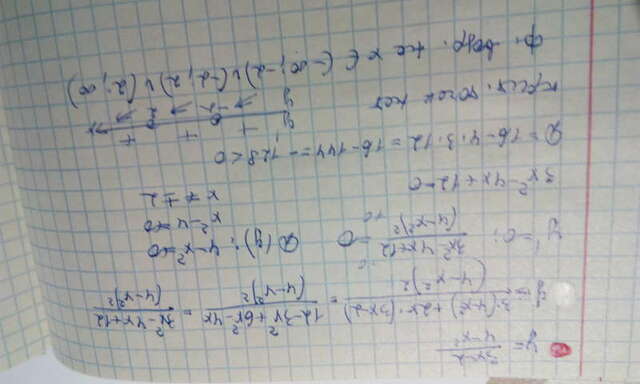 y = (3x-2)/(4-x²)
y' = (3(4-x²)+2x·(3x-2))/(4-x²)² = (12-3x²+6x²-4x)/(4-x²)² = (3x²-4x+12)/(4-x²)²
y'=0: (3x²-4x+12)/(4-x²)² = 0 D(y): 4-x²≠0
x²-4≠0
x≠±2
3x²-4x+12=0
D=16-4·3·12=16-144=-128<0
крит. точек нет
y' + -2 + 2 + x
y
ф. возр. на x ∈ (-∞;-2)∪(-2;2)∪(2;∞)